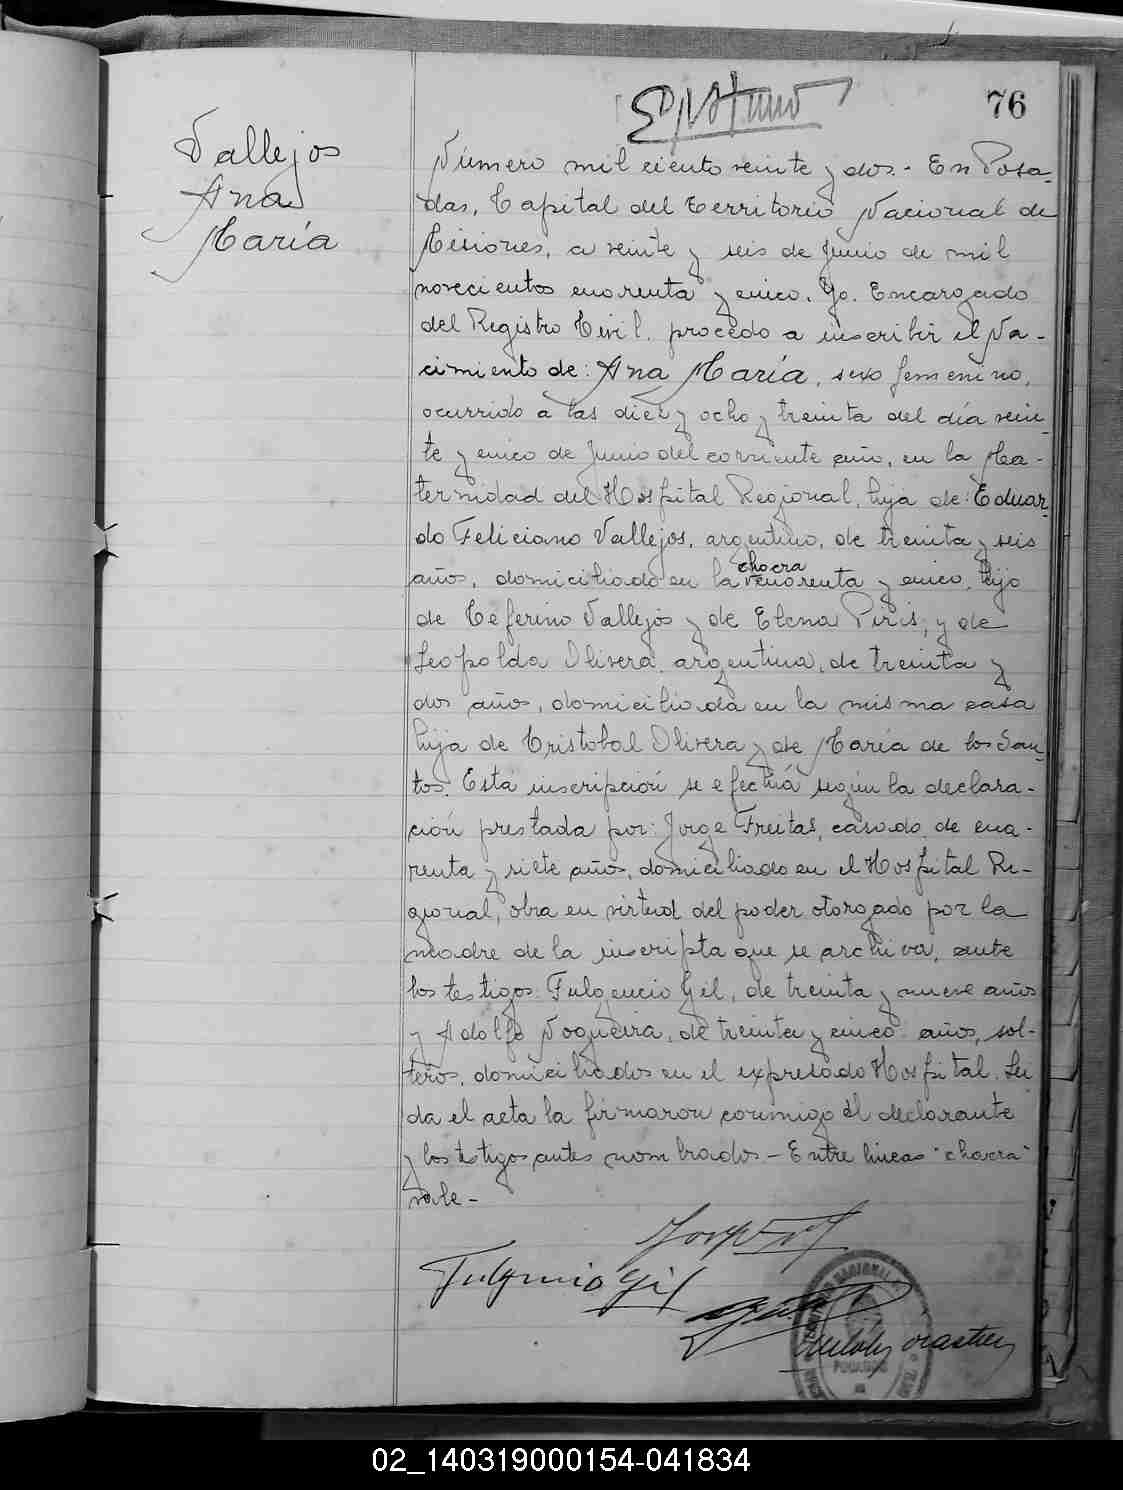 76
Vallejos
Ana
María
Número mil ciento veinte y dos.- En Posa-
das, Capital del Territorio Nacional de
Misiones, a veinte y seis de Junio de mil
novecientos cuarenta y cinco. Yo. Encargado
del Registro Civil. procedo a inscribir el Na-
cimiento de: Ana María, sexo femenino,
ocurrido a las diez y ocho y treinta del día vein-
te y cinco de Junio del corriente año, en la Ma-
ternidad del Hospital Regional, hija de: Eduar-
do Feliciano Vallejos, argentino, de treinta y seis
chacra
años, domiciliado en la cuarenta y cinco, hijo
de Ceferino Vallejos y de Elena Piris; y de
Leopolda Olivera, argentina, de treinta y
dos años, domiciliada en la misma casa
hija de Cristobal Olivera y de María de los San-
tos. Esta inscripción se efectuá según la declara-
ción prestada por: Jorge Freitas, casado, de cua-
renta y siete años, domiciliado en el Hospital Re-
gional, obra en virtud del poder otorgado por la
madre de la inscripta que se archiva, ante
los testigos: Fulgencio Gil, de treinta y nueve años
y Adolfo Nogueira, de treinta y cinco años, sol-
teros, domiciliados en el expresado Hospital. Lei
da el acta la firmaron conmigo el declarante
y los testigos antes nombrados - Entre lineas "chacra"
vale -
Fulgencio Gil
02_140319000154-041834